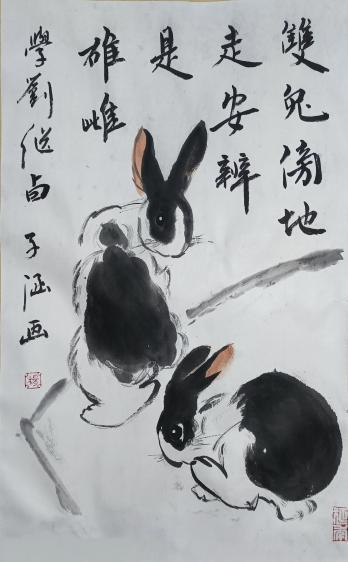 雙兔傍地
走安辨
是
雄雌
學劉继卣 子涵画